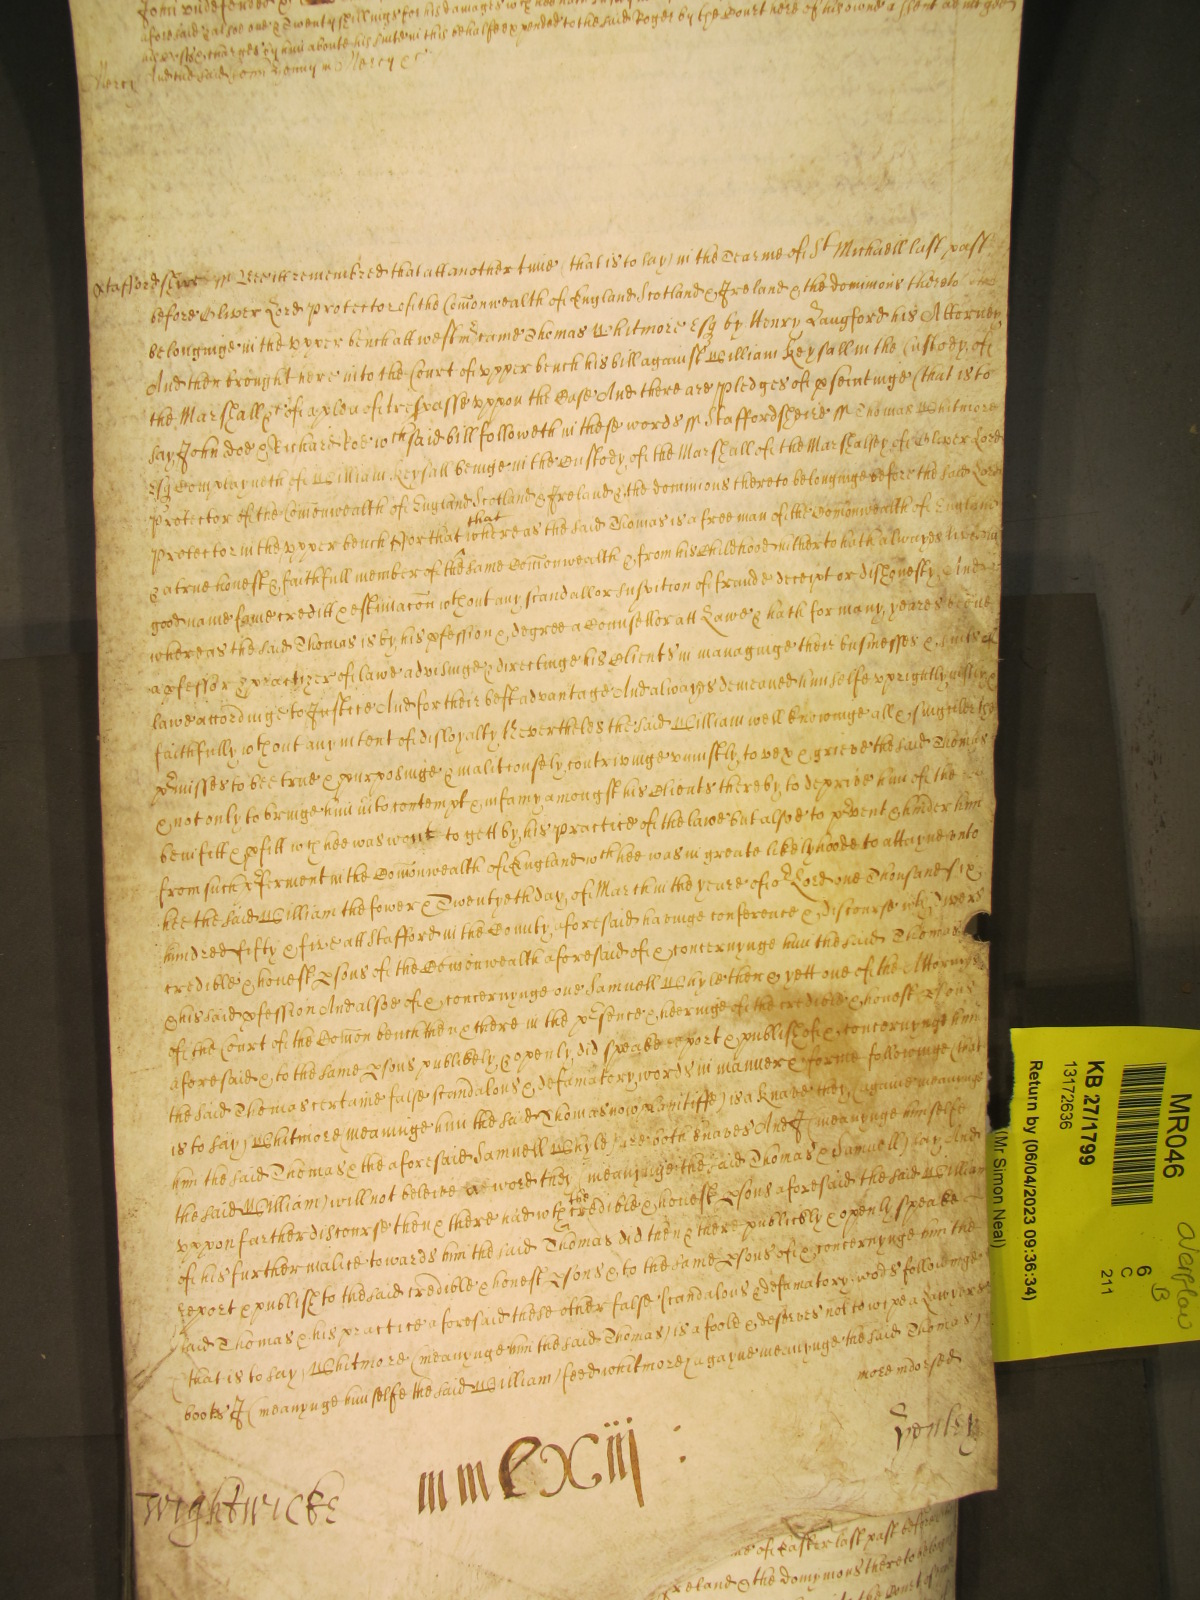 aforesaid & alsoe one & Twenty shillings for his damages
expended to the said Roger by the Court here of his owne assent
Merci And the said John Conny in Mercy &c
Staffordshire ss Bee itt remembred that att another time (that is to say) in the Tearme of St Michaell last past
before Oliver Lord Protector of the Comonwealth of England Scotland & Ireland & the dominions thereto
belonginge in the upper bench att westmr came Thomas Whitmore Esq by Henry Langford his Attorney
And then brought here into the Court of upper bench his bill against William Keysall in the Custody of
the Marshall &c of a plea of trespasse uppon the Case And there are pledges of psecutinge (that is to
say John Doe & Richard Roe wch said bill followeth in these words ss Staffordsheire ss Thomas Whitmore
Esq Complayneth of William Keysall beinge in the Custody of the Marshall of the Marshalsey of Oliver Lord
Protector of the Comonwealth of England Scotland & Ireland & the dominions thereto belonginge before the said Lord
Protector in the upper bench For that that whereas the said Thomas is a free man of the Comonwealth of England
& a true honest & faithfull member of the same Comonwealth & from his Childhood hitherto hath alwayes lived in
good name fame creditt & estimacon wthout any scandall or suspition of fraude deceipt or dishonesty And
whereas the said Thomas is by his pfession & degree a Counsellor att Lawe & hath for many yeares beene
a pfessor & practizer of lawe advisinge & directinge his Clients in managinge their businesses & suits att
lawe accordinge to Justice And for their best advantage And alwayes demeaned himselfe uprightly justly &
faithfully wthout any intent of disloyalty Nevertheles the said William well knowinge all & singuler the
pmisses to bee true & purposinge & malitiously contrivinge uniustly to vex & grieve the said Thomas
& not only to bringe him into contempt & infamy amongst his Clients thereby to deprive him of the
benifitt & pfitt wch hee was wont to gett by his practice of the lawe but alsoe to pvent & hinder him
from such pferment in the Comonwealth of England wch hee was in greate likelyhoode to attayne unto
hee the said William the fower & Twentyeth day of March in the yeare of or Lord one Thousand six
hundred fifty & five att Stafford in the County aforesaid haveinge conference & discourse wth divers
credible & honest psons of the Comonwealth aforesaid of & concernynge him the said Thomas
& his said pfession And alsoe of & concernynge one Samuell Whyle then & yett one of the Attornyes
of the Court of the Comon bench then & there in the psence & heeringe of the credible & honest psons
aforesaid & to the same psons publikely & openly did speake report & publish of & concernynge him
the said Thomas certaine false scandalous & defamatory words in manner & forme followinge (that
is to say) Whitmore (meaninge him the said Thomas now Plaintiffe) is a knave they (againe meaninge
him the said Thomas & the aforesaid Samuell Whyle) are both knaves And I (meanynge himselfe
the said William) will not beleive a word they (meanynge the said Thomas & Samuell) say And
uppon farther discourse then & there had wth the credible & honest psons aforesaid the said William
of his further malice towards him the said Thomas did then & there publickly & openly speake
report & publish to the said credible & honest psons & to the same psons of & concernynge him the
said Thomas & his practice aforesaid these other false scandalous & defamatory words followinge
(that is to say) Whitmore (meanynge him the said Thomas) is a foole & deserves not to wipe a Lawyers
bootes I (meanynge himselfe the said William) feed whitmore (agayne meanynge the said Thomas)
more indorsed
Wightwicke
mmlxiij :
Penley
of Easter last past before
Ireland & the domynions thereto
MR046
KB 27/1799
13172636
Return by (06/04/2023 09:36:34)
(Mr Simon Neal)
6
C
211
Overflow
B